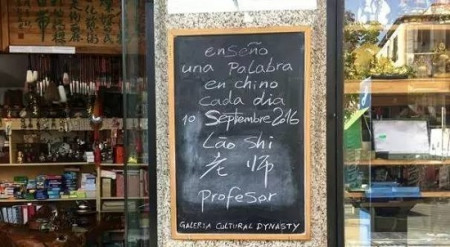 enseño
una palabra
en chino
cada dia
10 Septiembre 2016
Lǎo Shī
老师
Profesor
GALERIA CULTURAL DYNASTY